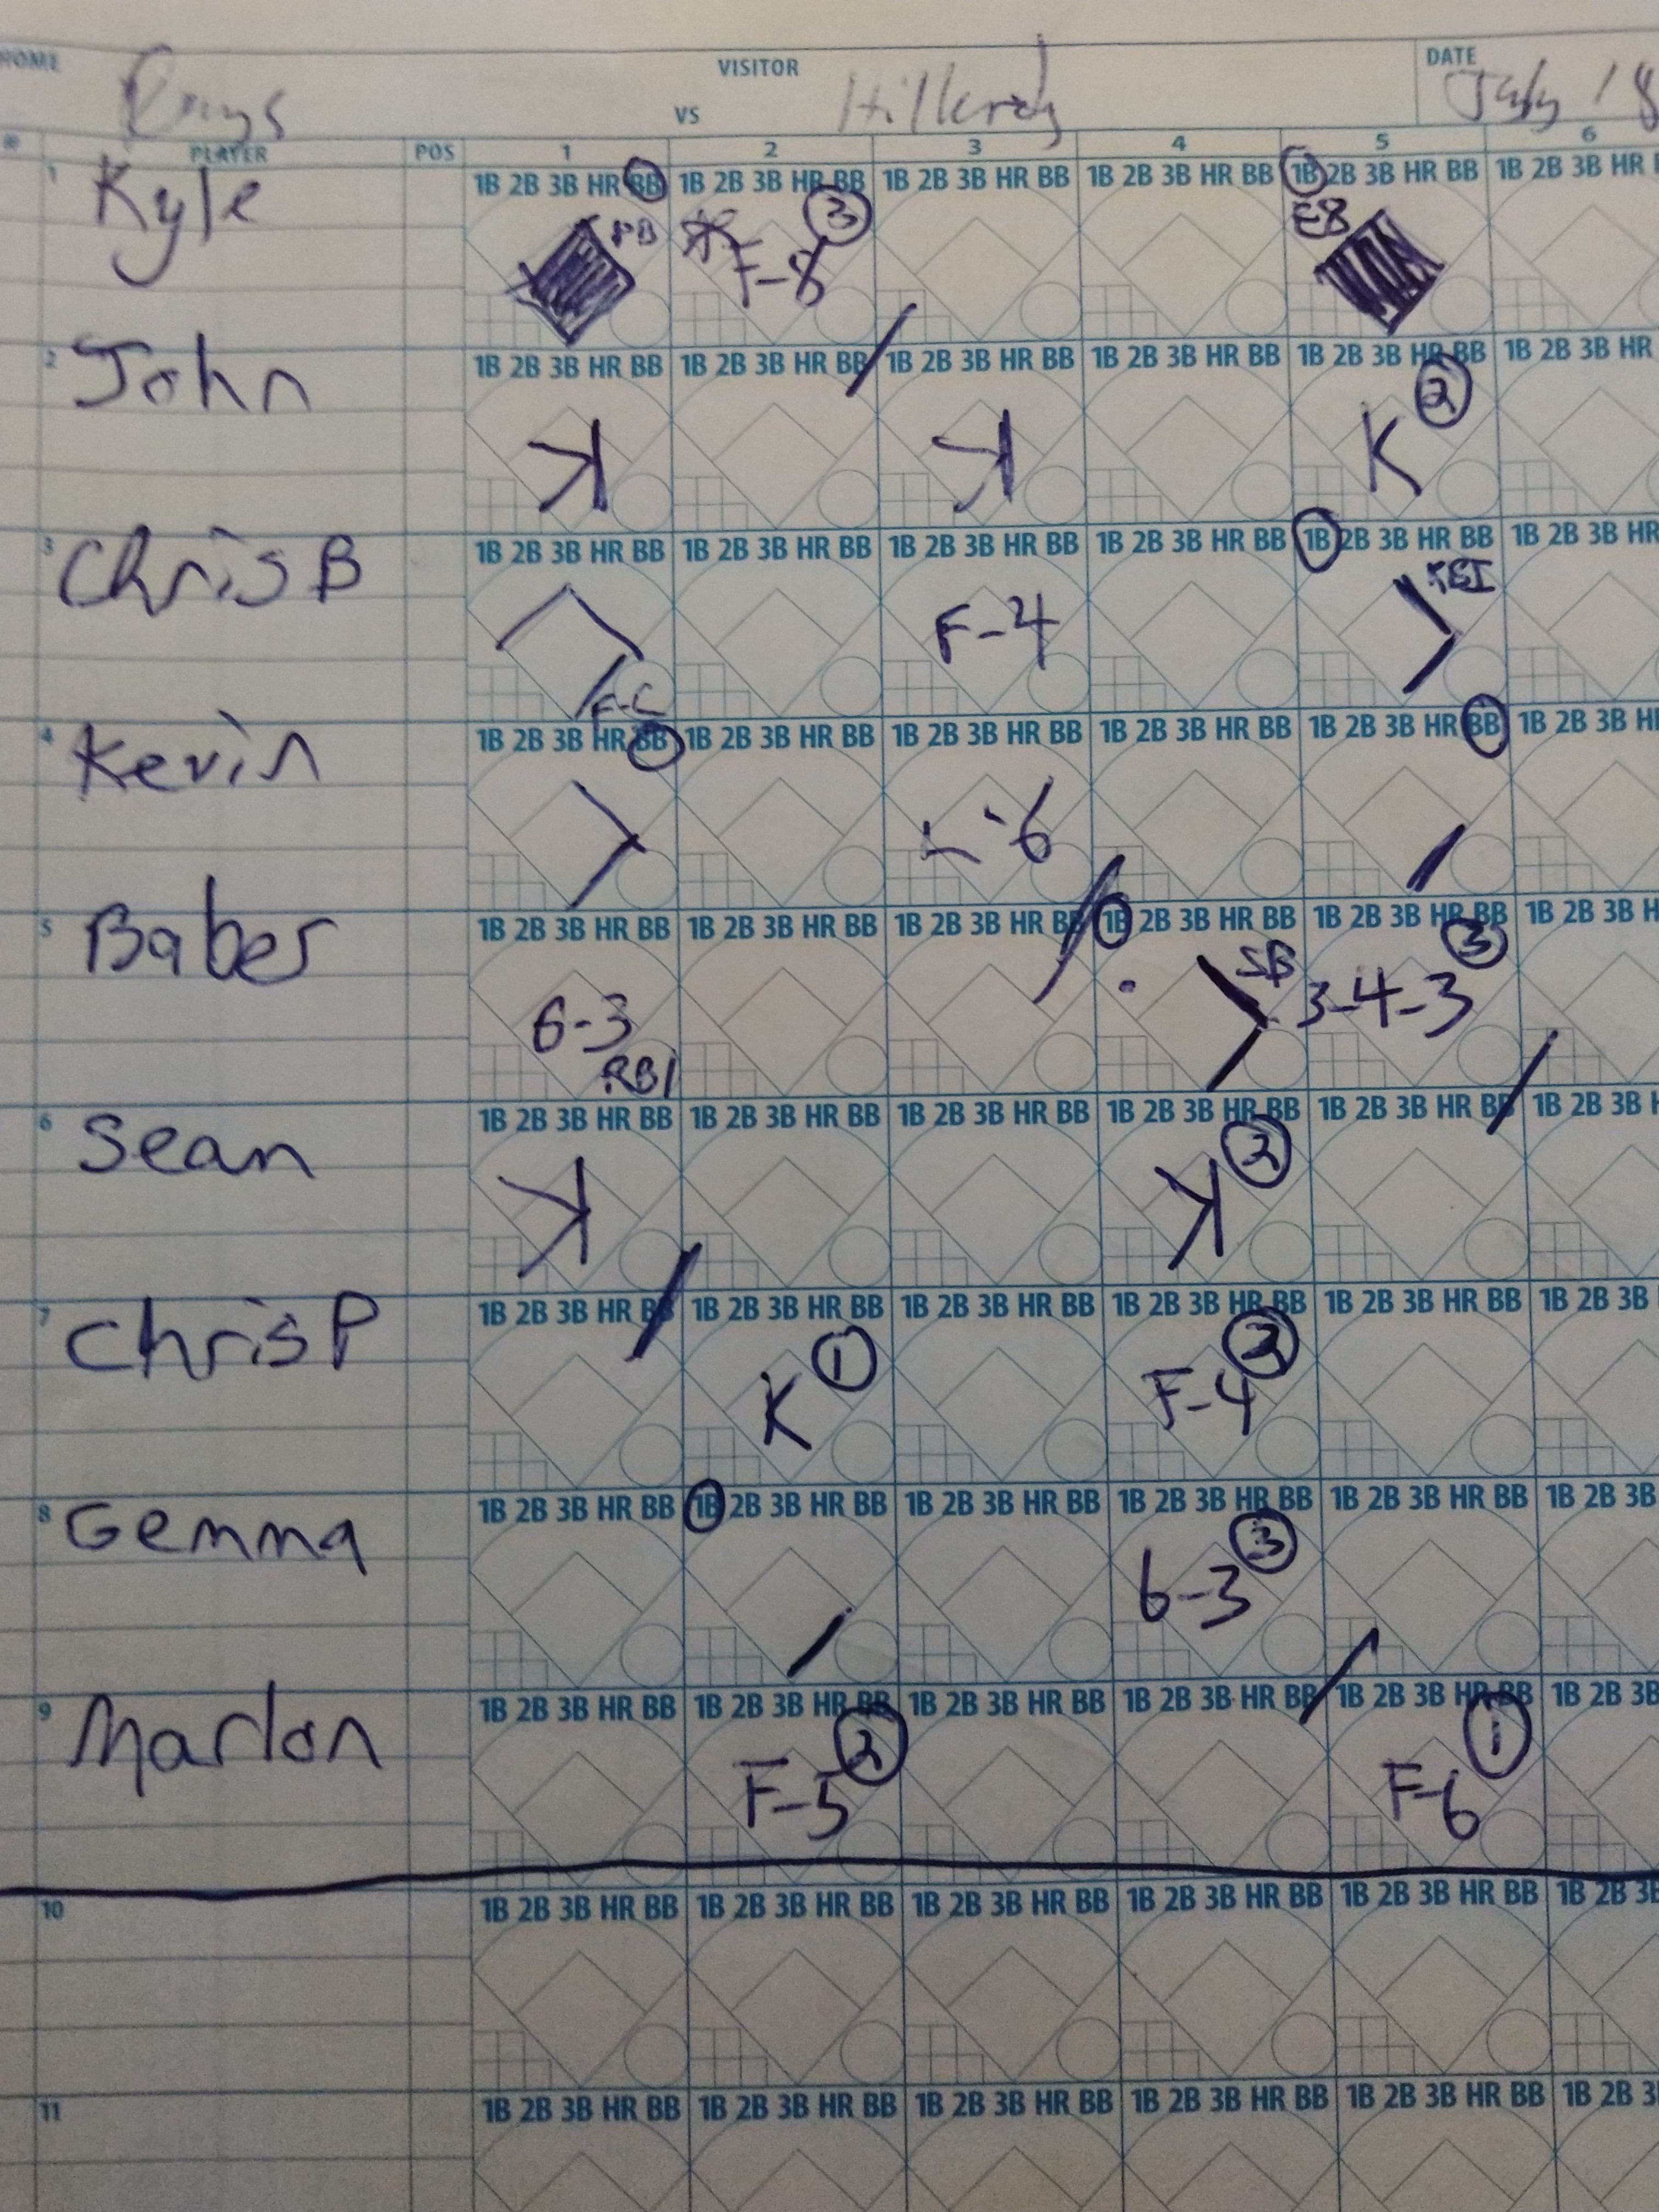 HOME VISITOR DATE
Rays VS July 18
# PLAYER POS 1 2 3 4 5 6
1 Kyle 1B 2B 3B HR BB 1B 2B 3B HR BB 1B 2B 3B HR BB 1B 2B 3B HR BB 1B 2B 3B HR BB 1B 2B 3B HR
PB F-8 3 E8
2 John 1B 2B 3B HR BB 1B 2B 3B HR BB 1B 2B 3B HR BB 1B 2B 3B HR BB 1B 2B 3B HR BB 1B 2B 3B HR
K K K 2
3 Chris B 1B 2B 3B HR BB 1B 2B 3B HR BB 1B 2B 3B HR BB 1B 2B 3B HR BB 1B 2B 3B HR BB 1B 2B 3B HR
F-C F-4 RBI
4 Kevin 1B 2B 3B HR BB 1B 2B 3B HR BB 1B 2B 3B HR BB 1B 2B 3B HR BB 1B 2B 3B HR BB 1B 2B 3B H
6
5 Baber 1B 2B 3B HR BB 1B 2B 3B HR BB 1B 2B 3B HR BB 1B 2B 3B HR BB 1B 2B 3B HR BB 1B 2B 3B H
6-3 RBI SB 3-4-3 3
6 Sean 1B 2B 3B HR BB 1B 2B 3B HR BB 1B 2B 3B HR BB 1B 2B 3B HR BB 1B 2B 3B HR BB 1B 2B 3B
K K
7 Chris P 1B 2B 3B HR BB 1B 2B 3B HR BB 1B 2B 3B HR BB 1B 2B 3B HR BB 1B 2B 3B HR BB 1B 2B 3B
K 1 F-4 2
8 Gemma 1B 2B 3B HR BB 1B 2B 3B HR BB 1B 2B 3B HR BB 1B 2B 3B HR BB 1B 2B 3B HR BB 1B 2B 3B
6-3 3
9 Marlon 1B 2B 3B HR BB 1B 2B 3B HR BB 1B 2B 3B HR BB 1B 2B 3B HR BB 1B 2B 3B HR BB 1B 2B 3B
F-5 2 F-6 1
10 1B 2B 3B HR BB 1B 2B 3B HR BB 1B 2B 3B HR BB 1B 2B 3B HR BB 1B 2B 3B HR BB 1B 2B 3B
11 1B 2B 3B HR BB 1B 2B 3B HR BB 1B 2B 3B HR BB 1B 2B 3B HR BB 1B 2B 3B HR BB 1B 2B 3